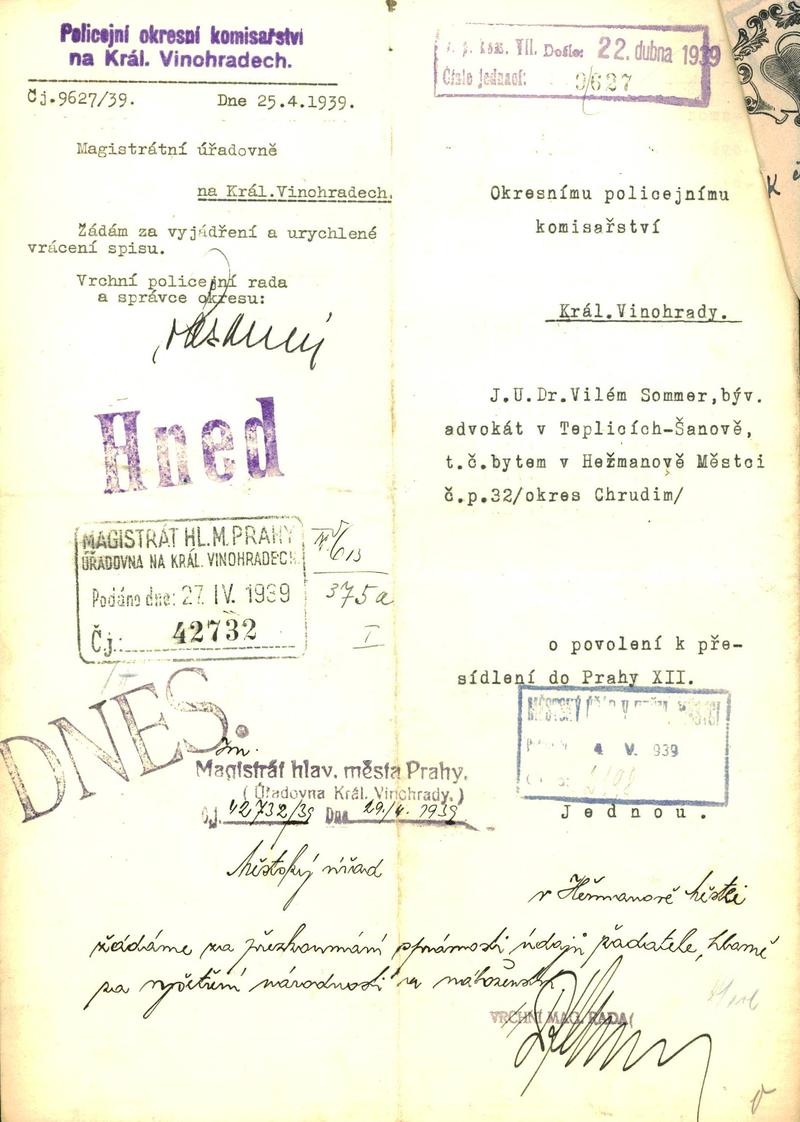 Policejní okresní komisařství
na Král. Vinohradech.
Čj.9627/39. Dne 25.4.1939.
Magistrátní úřadovně
na Král.Vinohradech.
Žádám za vyjádření a urychlené
vrácení spisu.
Vrchní policejní rada
a správce okresu:
Hned
MAGISTRÁT HL. M. PRAHY
ÚŘADOVNA NA KRÁL. VINOHRADECH
Podáno dne: 27. IV. 1939
Čj.: 42732
375a
I
DNES.
Magistrát hlav. města Prahy.
(Úřadovna Král. Vinohrady.)
Čj. 42732/39 Dne 29/4. 1939
Městský úřad
v Heřmanově Městci
žádáme za přezkoumání správnosti údajů žadatele, hlavně
za vyšetření národnosti a náboženství
VRCHNÍ MAG. RADA
VII. Došlo: 22. dubna 1939
Číslo jednací: 9627
Okresnímu policejnímu
komisařství
Král.Vinohrady.
J.U.Dr.Vilém Sommer,býv.
advokát v Teplicích-Šanově,
t.č.bytem v Heřmanově Městci
č.p.32/okres Chrudim/
o povolení k pře-
sídlení do Prahy XII.
MĚSTSKÝ ÚŘAD V MĚSTCI
4 V. 939
Jednou.